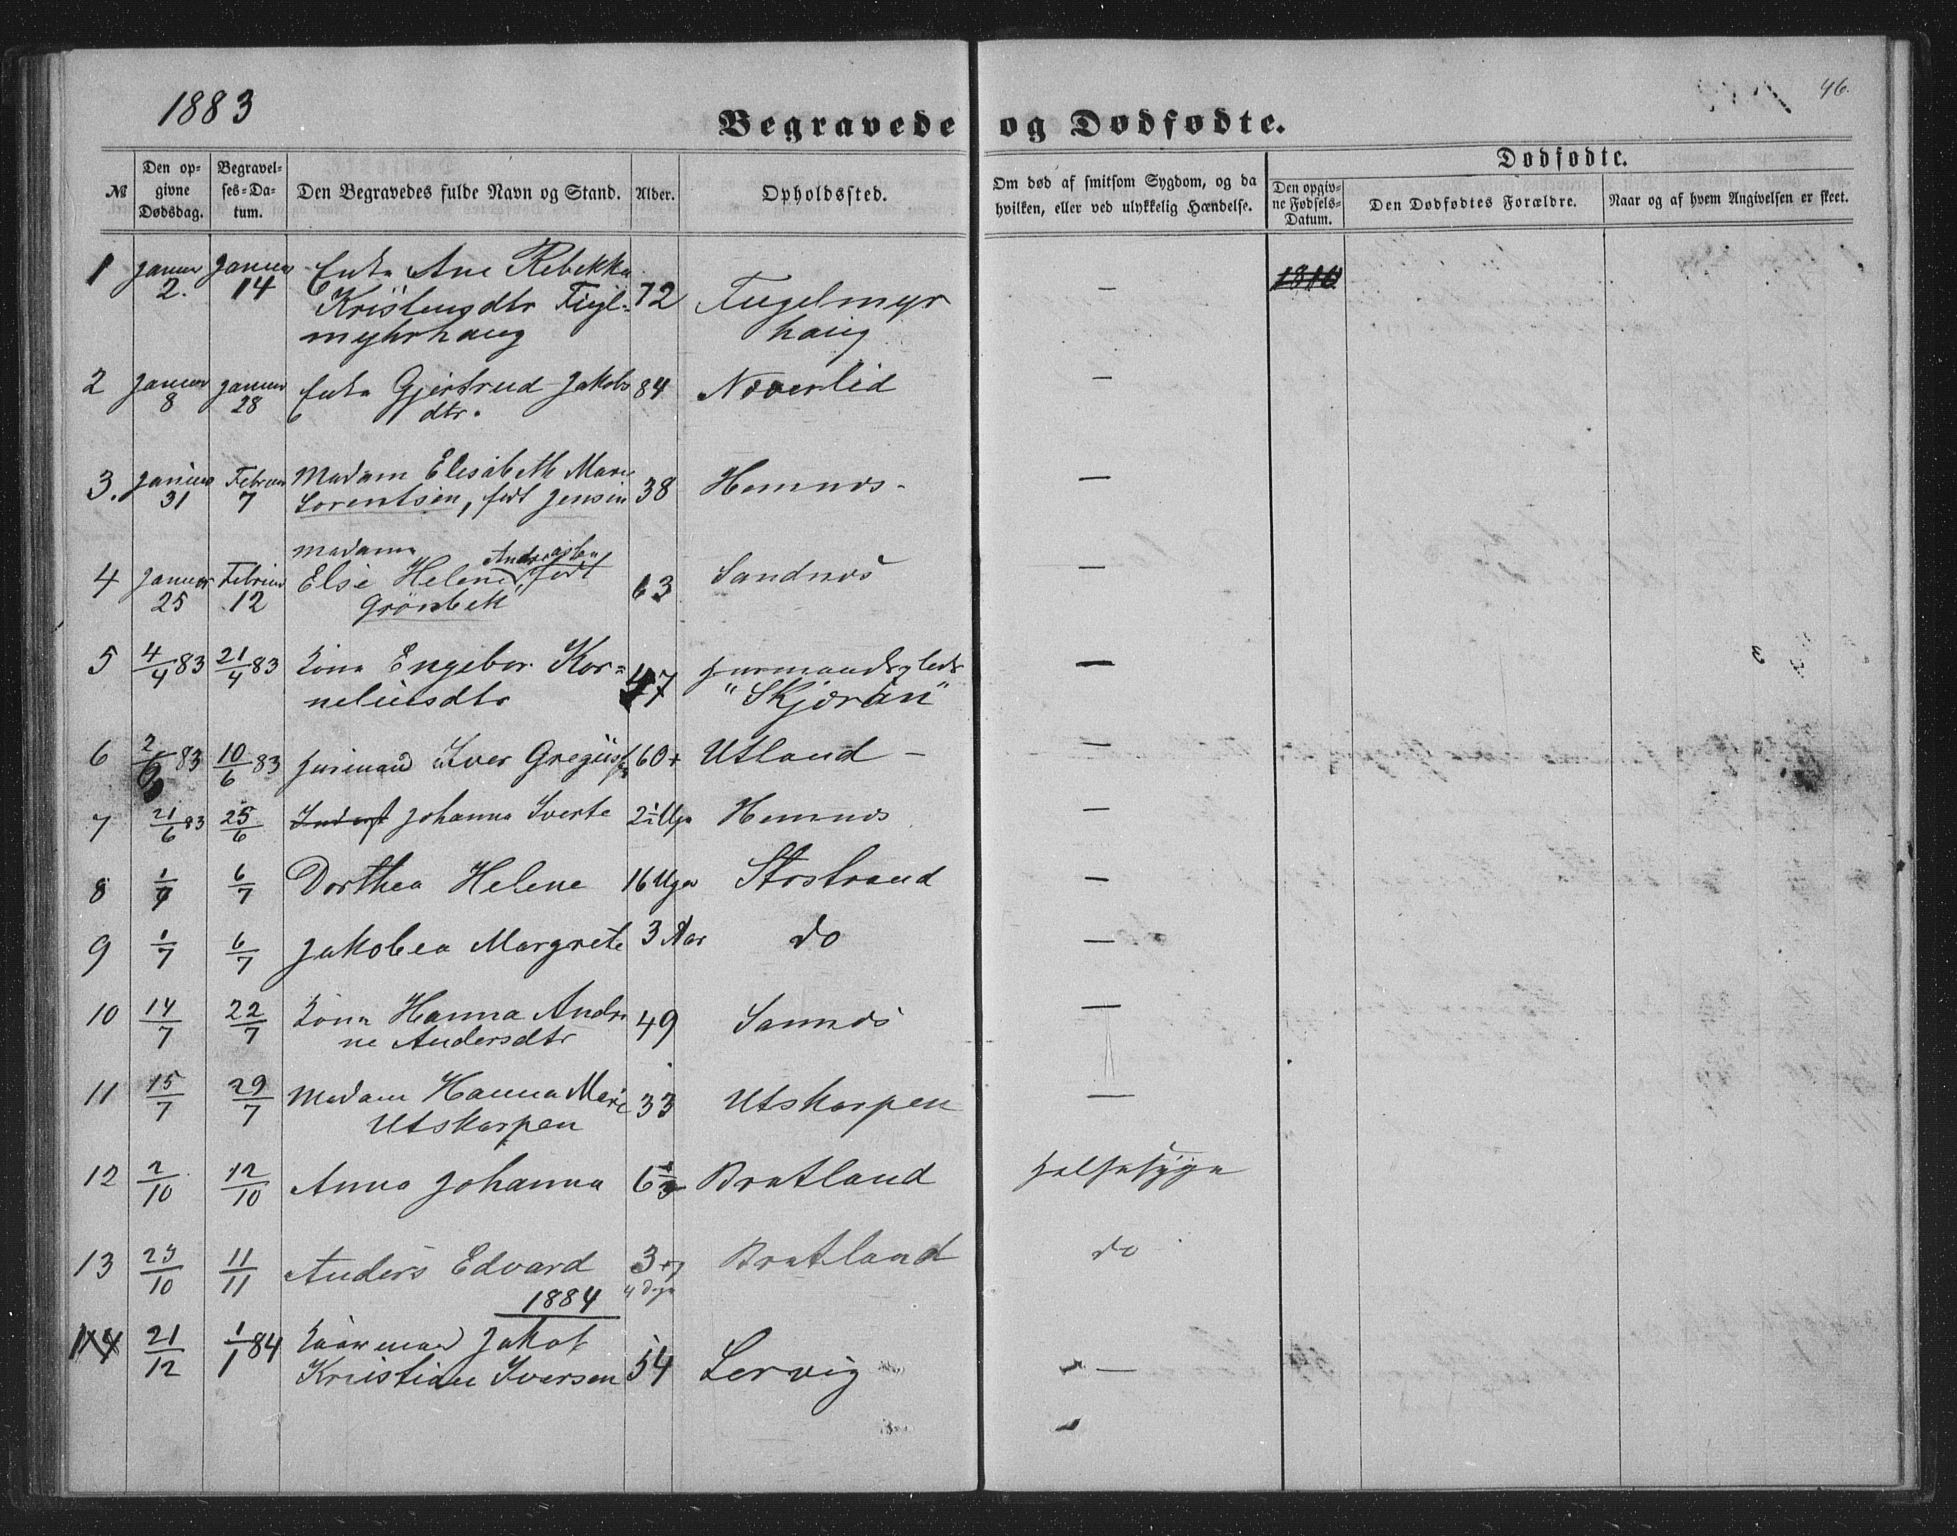 1883
46.
Begravede og Dødfødte.
Dødfødte.
№ Den op-givne Dødsdag. Begravel-ses-Da-tum. Den Begravedes fulde Navn og Stand. Alder. Opholdssted. Om død af smitsom Sygdom, og da hvilken, eller ved ulykkelig Hændelse. Den opgiv-ne Fødsels-Datum. Den Dødfødtes Forældre. Naar og af hvem Angivelsen er skeet.
1 Januar 2. Januar 14 Enke Ane Rebekka 72 Fugelmyr —
Kristensdtr Fugl- haug
myhrhaug
2 Januar 8 Januar 28 Enke Gjertrud Jakobs 84 Nøverlid —
dtr.
3. Januar 31 Februar 7 Madam Elisabeth Marie 38 Hemnæs- —
Lorentsen, født Jensen
4 Januar 25 Februar 12 Madam 63 Sandnæs —
Else Helene Andreasen, født
Grønbeck
5 4/4 83 21/4 83 Kone Engebor Kor= 47 Husmandsplads —
neliusdtr "Skjæran"
6 2/6 83 10/6 83 Husmand Iver Gregusss 60 + Utland —
7 21/6 83 25/6 Johanna Iverte 2 1/2 Uge Hemnæs —
8 1/7 6/7 Dorthea Helene 16 Uger Storstrand —
9 1/7 6/7 Jakobea Margrete 3 Aar do —
10 14/7 22/7 Kone Hanna Andri 49 Sannæs —
ne Andersdtr
11 15/7 29/7 Madam Hanna Marie 33 Utskarpen —
Utskarpen
12 2/10 12/10 Anna Johanna 6 Bratland Halsesyge
13 23/10 11/11 Anders Edvard 3 Bratland do
1884
14 21/12 1/1 84 Kaarmand Jakob 54 Lervig —
Kristian Iversen